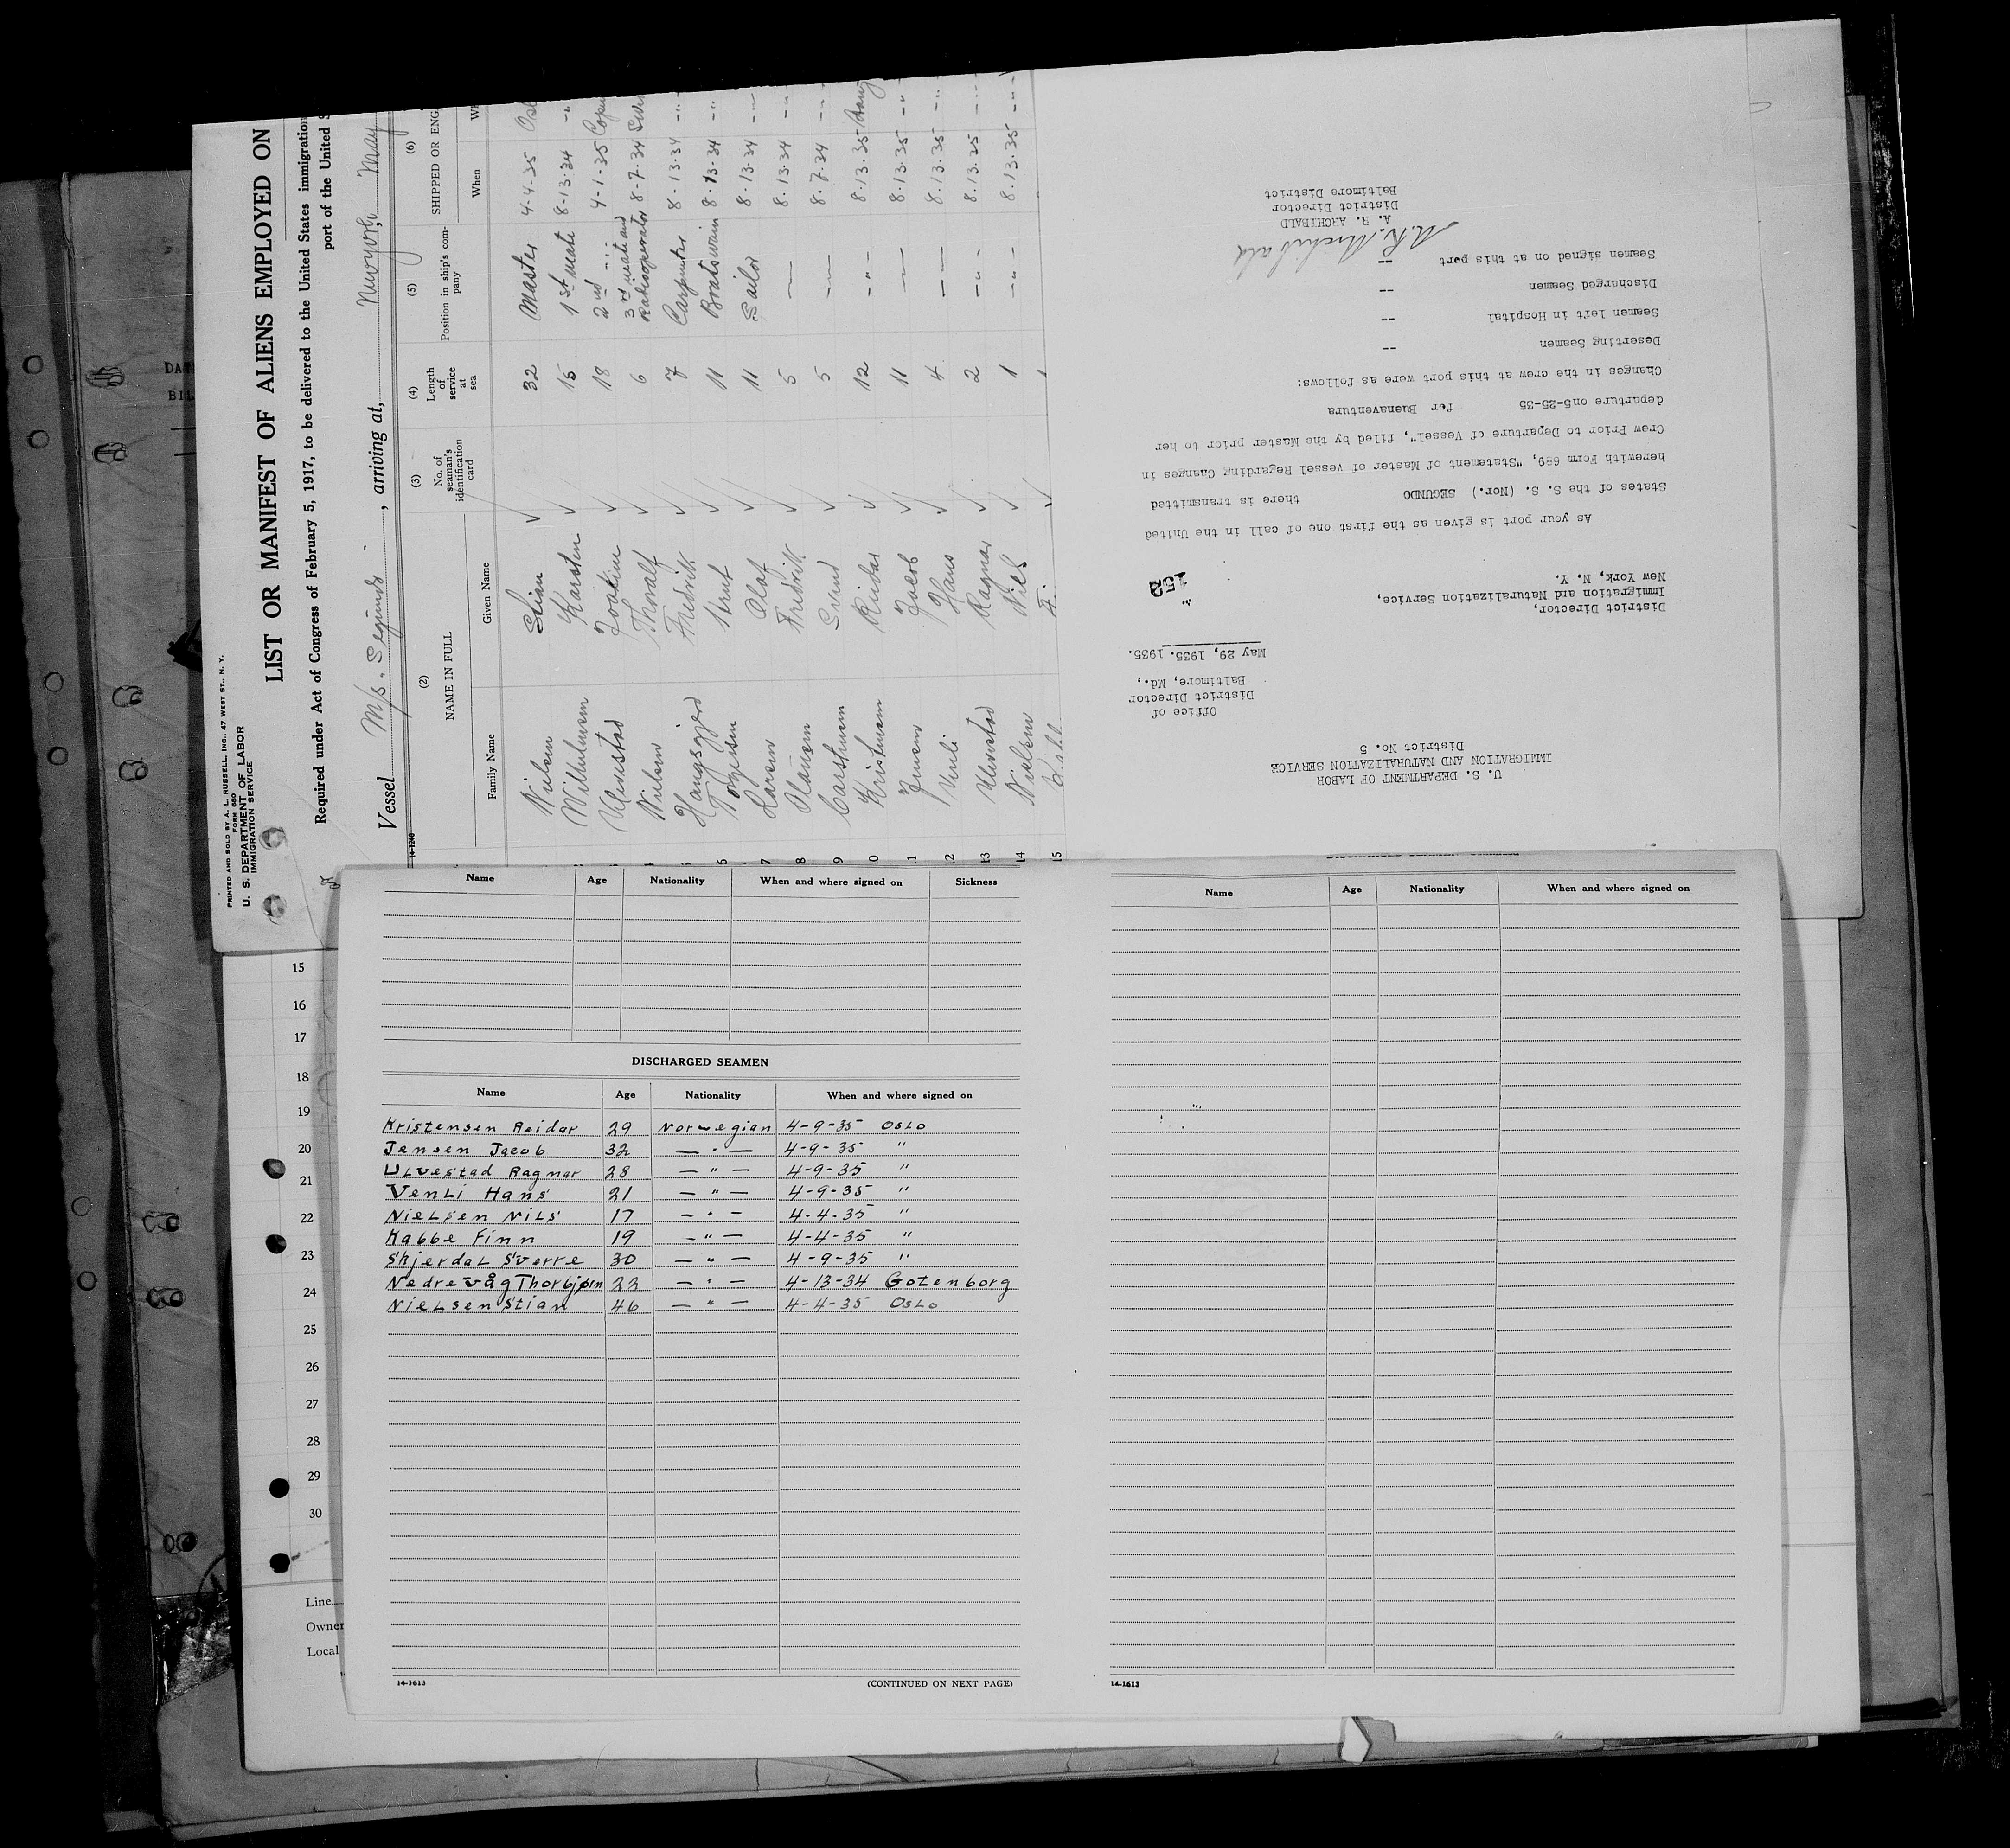 PRINTED AND SOLD BY A. L. RUSSELL, INC., 47 WEST ST., N. Y.
FORM 680
U. S. DEPARTMENT OF LABOR
IMMIGRATION SERVICE
LIST OR MANIFEST OF ALIENS EMPLOYED ON
Required under Act of Congress of February 5, 1917, to be delivered to the United States immigration
port of the United S
Vessel M/s. Segundo, arriving at, Newyork, May
14-1240
(2) (3) (4) (5) (6)
NAME IN FULL No. of seaman's identification card Length of service at sea Position in ship's company SHIPPED OR ENG
Family Name Given Name When
Nielsen Stian 32 Master 4-4-35
Wilhelmsen Karsten 15 1st mate 8-13-34
Ulvestad Joakim 18 2nd -"- 4-1-35
Nielsen Thoralf 6 3rd mate and Radiooperator 8-7-34
Fredrik 7 Carpenter 8-13-34
Knut 11 Boatswain 8-13-34
7 Larsen Olaf 11 Sailor 8-13-34
8 Fredrik 5 8-13-34
9 5 8-7-34
0 Kristensen Reidar 12 -"- 8-13-35
11 Jensen Jacob 11 8-13-35
12 Venli Hans 4 8-13-35
13 Ulvestad Ragnar 2 -"- 8-13-35
14 Nielsen Niels 1 -"- 8-13-35
15
U. S. DEPARTMENT OF LABOR
IMMIGRATION AND NATURALIZATION SERVICE
District No. 5
Office of
District Director
Baltimore, Md.,
May 29, 1935. 1935.
District Director,
Immigration and Naturalization Service,
New York, N. Y.
As your port is given as the first one of call in the United
States of the S. S. (Nor.) SEGUNDO there is transmitted
herewith Form 689, "Statement of Master of Vessel Regarding Changes in
Crew Prior to Departure of Vessel", filed by the Master prior to her
departure on 5-25-35 for Buenaventura
Changes in the crew at this port were as follows:
Deserting Seamen --
Seamen left in Hospital --
Discharged Seamen --
Seamen signed on at this port --
A. R. Archibald
A. R. ARCHIBALD
District Director
Baltimore District
Name Age Nationality When and where signed on Sickness
DISCHARGED SEAMEN
Name Age Nationality When and where signed on
Kristensen Reidar 29 Norwegian 4-9-35 Oslo
Jensen Jacob 32 — " — 4-9-35 "
Ulvestad Ragnar 28 — " — 4-9-35 "
Venli Hans 21 — " — 4-9-35 "
Nielsen Nils 17 — " — 4-4-35 "
Kabbe Finn 19 — " — 4-4-35 "
Skjerdal Sverre 30 — " — 4-9-35 "
Nedrevåg Thorbjørn 22 — " — 4-13-34 Gotenborg
Nielsen Stian 46 — " — 4-4-35 Oslo
14-1613
(CONTINUED ON NEXT PAGE)
Name Age Nationality When and where signed on
14-1613
15
16
17
18
19
20
21
22
23
24
25
26
27
28
29
30
Line
Owner
Local